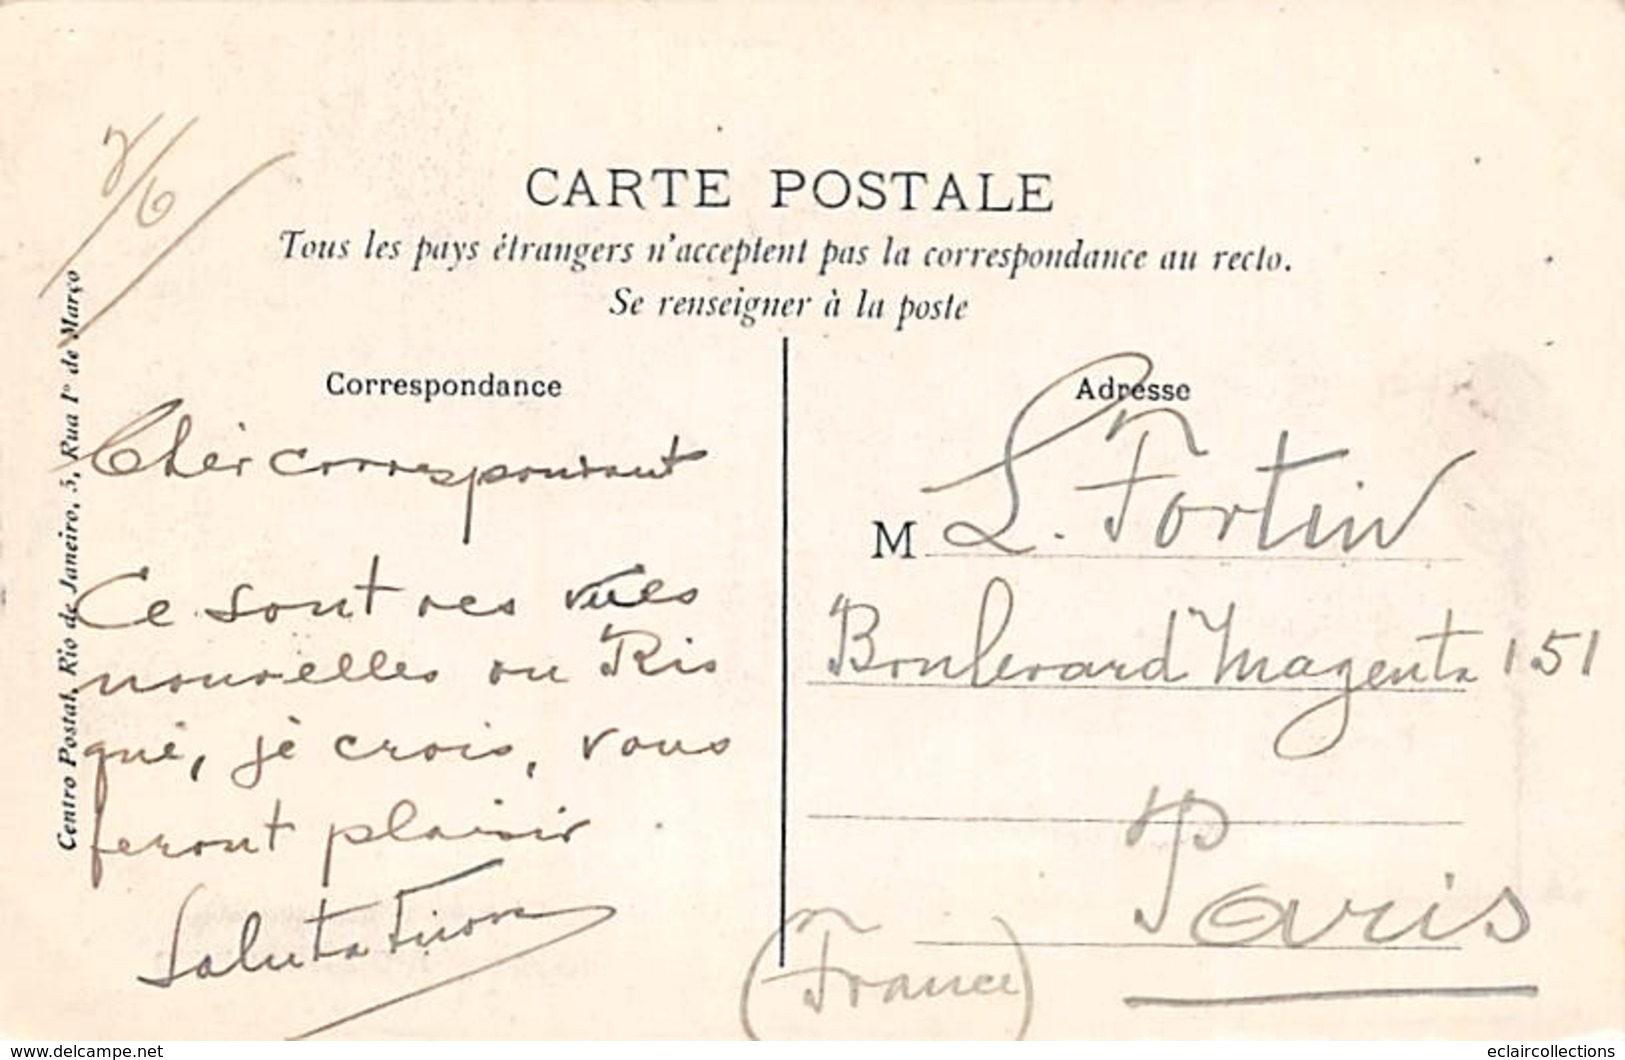 7/6
CARTE POSTALE
Tous les pays étrangers n'acceptent pas la correspondance au recto.
Se renseigner à la poste
Correspondance
Cher correspondant
Ce sont des vues
nouvelles ou Rio
que, je crois, vous
feront plaisir
Salutations
Centro Postal, Rio de Janeiro, 5, Rua 1º de Março
Adresse
M L. Fortin
Boulevard Magenta 151
Paris
(France)
www.delcampe.net
eclaircollections